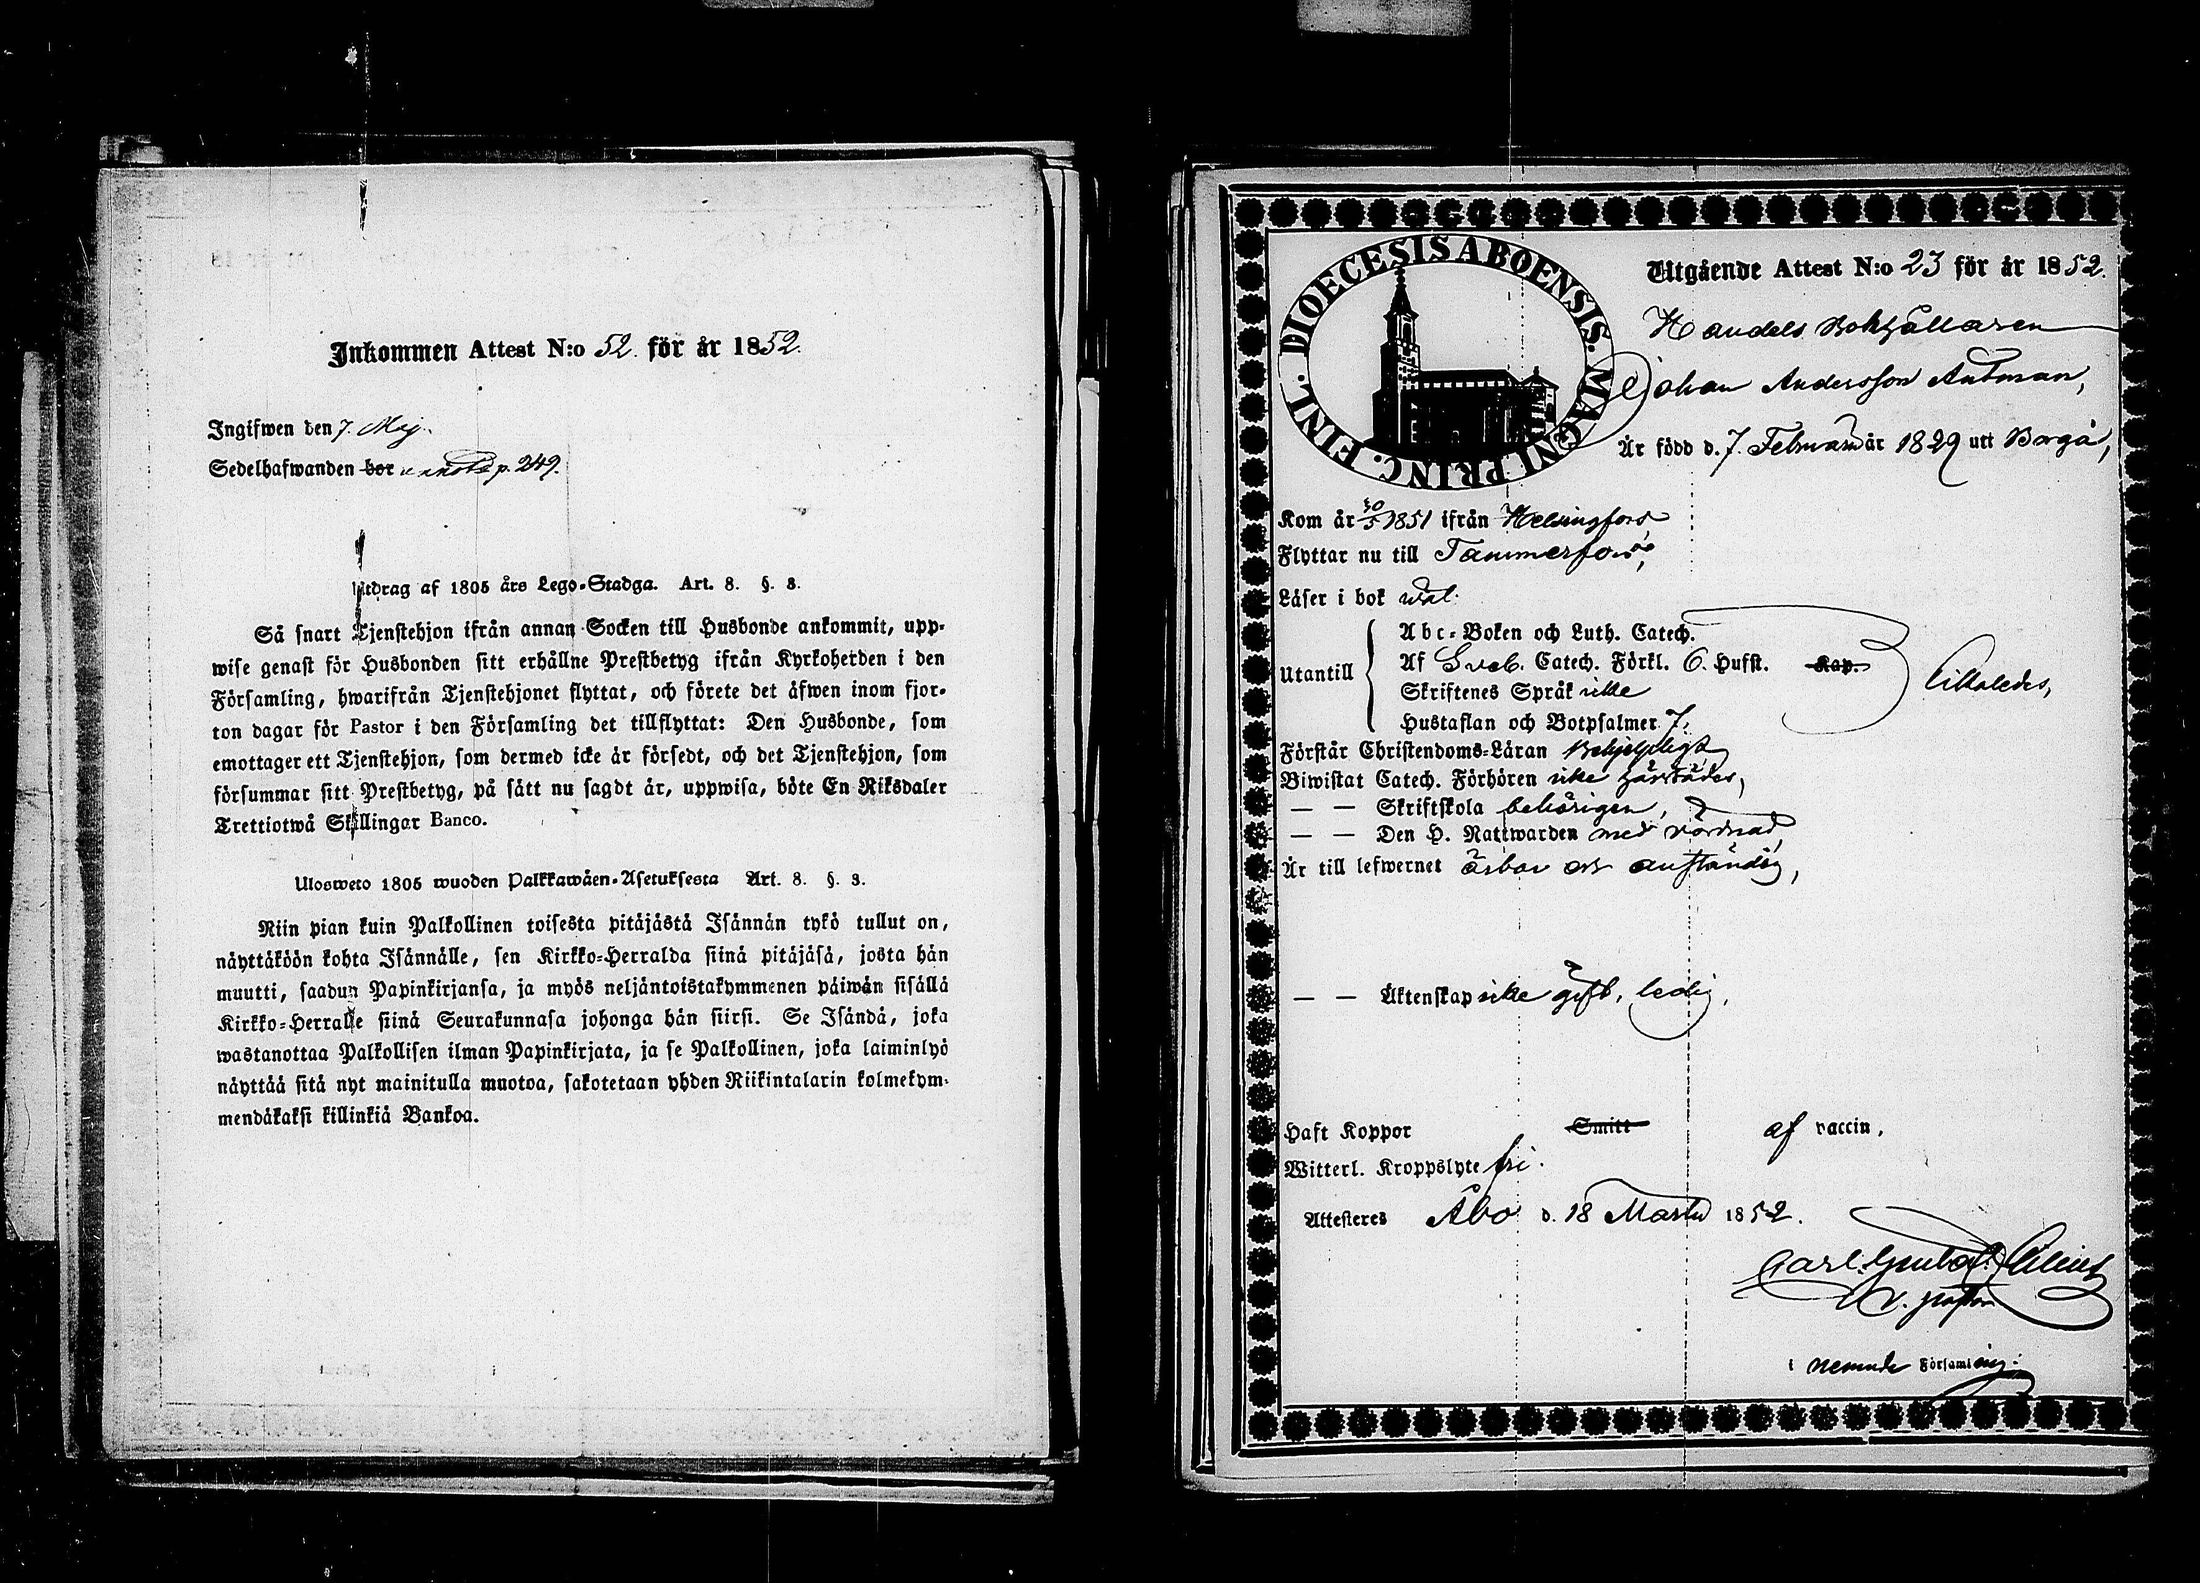 Inkommen Attest N:o 52. för år 1852.
Ingifwen den 7. Maj.
Sedelhafwanden bor p. 249.
Utdrag af 1805 års Lego-Stadga. Art. 8. §. 3.
Så snart Tjenstehjon ifrån annan Socken till Husbonde ankommit, upp-
wise genast för Husbonden sitt erhållne Prestbetyg ifrån Kyrkoherden i den
Församling, hwarifrån Tjenstehjonet flyttat, och förete det äfwen inom fjor-
ton dagar för Pastor i den Församling det tillflyttat: Den Husbonde, som
emottager ett Tjenstehjon, som dermed icke är försedt, och det Tjenstehjon, som
försummar sitt Prestbetyg, på sätt nu sagdt är, uppwisa, böte En Riksdaler
Trettiotwå Skillingar Banco.
Ulosweto 1805 wuoden Palkkawäen-Asetuksesta Art. 8. §. 3.
Niin pian kuin Palkollinen toisesta pitäjästä Isännän tykö tullut on,
näyttäköön kohta Isännälle, sen Kirkko-Herralda siinä pitäjäsä, josta hän
muutti, saadun Papinkirjansa, ja myös neljäntoistakymmenen päiwän sisällä
Kirkko-Herralle siinä Seurakunnasa johonga hän siirsi. Se Isändä, joka
wastanottaa Palkollisen ilman Papinkirjata, ja se Palkollinen, joka laiminlyö
näyttää sitä nyt mainitulla muotoa, sakotetaan yhden Riikintalarin kolmekym-
mendäkaksi killinkiä Bankoa.
DIOECESIS ABOENSIS. MAGNI PRINC. FINL.
Utgående Attest N:o 23 för år 1852.
Handels Bokhållaren
Johan Andersson Autman,
Är född d. 7. Februari år 1829 utt Borgå,
Kom år 30/5 1851 ifrån Helsingfors
Flyttar nu till Tammerfors,
Läser i bok wäl.
Utantill
Abc-Boken och Luth. Catech.
Af Sveb. Catech. Förkl. 6. Hufst. Kap.
Skriftenes Språk icke
Hustaflan och Botpsalmer 7.
likaledes,
Förstår Christendoms-Läran Behjelpligt
Biwistat Catech. Förhören icke härstädes,
— — Skriftskola behörigen,
— — Den H. Nattwarden med vördnad,
Är till lefwernet ärbar och anständig,
— — Äktenskap icke gift, ledig,
Haft Koppor Smitt af vaccin,
Witterl. Kroppslyte fri.
Attesteres Åbo d. 18 Martii 1852.
Carl Gustaf
v. pastor
i nemnde Församling.